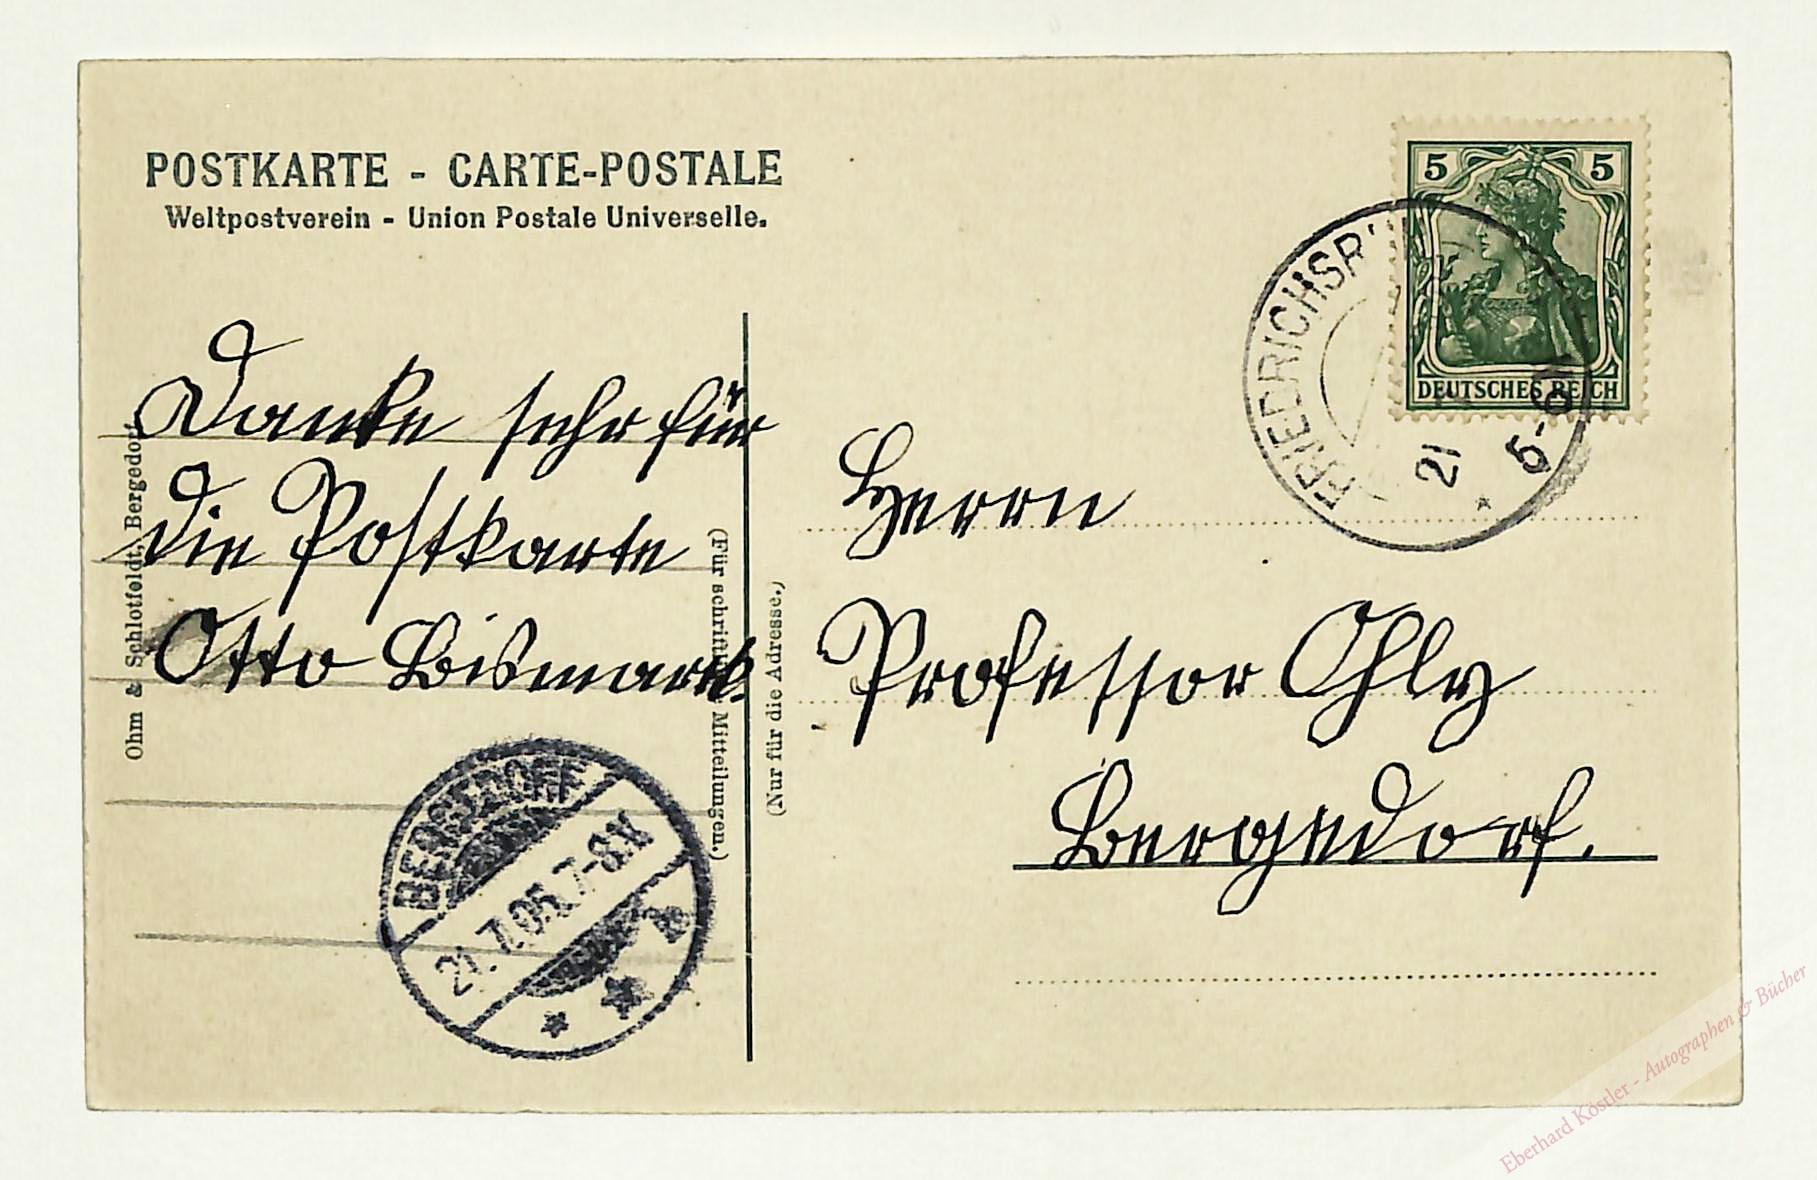 POSTKARTE - CARTE-POSTALE
Weltpostverein - Union Postale Universelle.
Danke sehr für
die Postkarte
Otto Bismarck.
Ohm & Schlotfeldt, Bergedorf
(Für schriftliche Mitteilungen.)
(Nur für die Adresse.)
BERGEDORF
21.7.05.7-8.N
5 5
DEUTSCHES REICH
FRIEDRICHSRUH
21
5-6N
Herrn
Professor Ohly
Bergedorf.
Eberhard Köstler - Autographen & Bücher